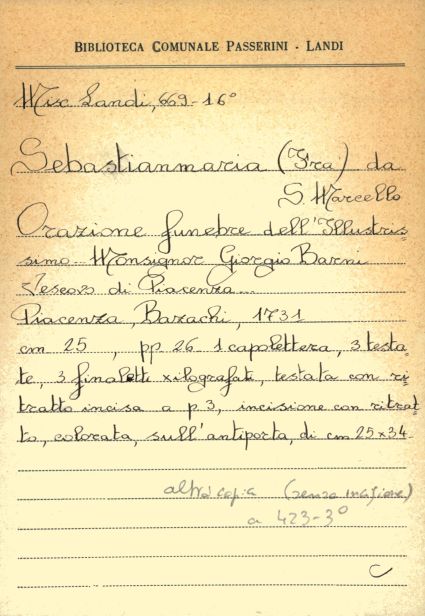 BIBLIOTECA COMUNALE PASSERINI - LANDI
Misc. Landi, 669-16°
Sebastianmaria (Fra) da
S. Marcello
Orazione funebre dell'Illustris-
simo Monsignor Giorgio Barni
Vescovo di Piacenza...
Piacenza, Bazachi, 1731
cm 25 , pp 26 1 capolettera, 3 testa-
te, 3 finaletti xilografati, testata con ri-
tratto incisa a p 3, incisione con ritrat-
to, colorata, sull'antiporta, di cm 25x34
altra copia (senza incisione)
a 423-3°
C